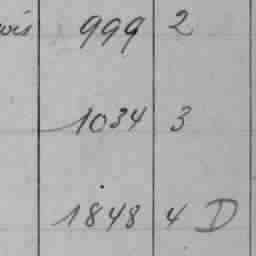 999 2
1034 3
1848 4 D